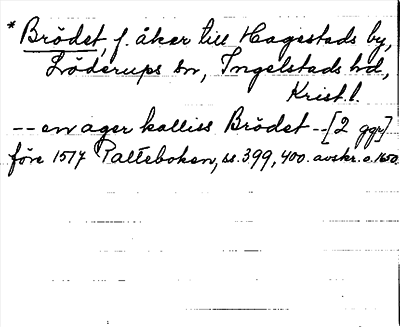 * Brödet, f. åker till Hagestads by,
Löderups sn, Ingelstads hd,
Krist. l.
-- en ager kalliss Brödet --[2 ggr]
före 1517 Palteboken, ss. 399, 400. avskr. c. 1650.